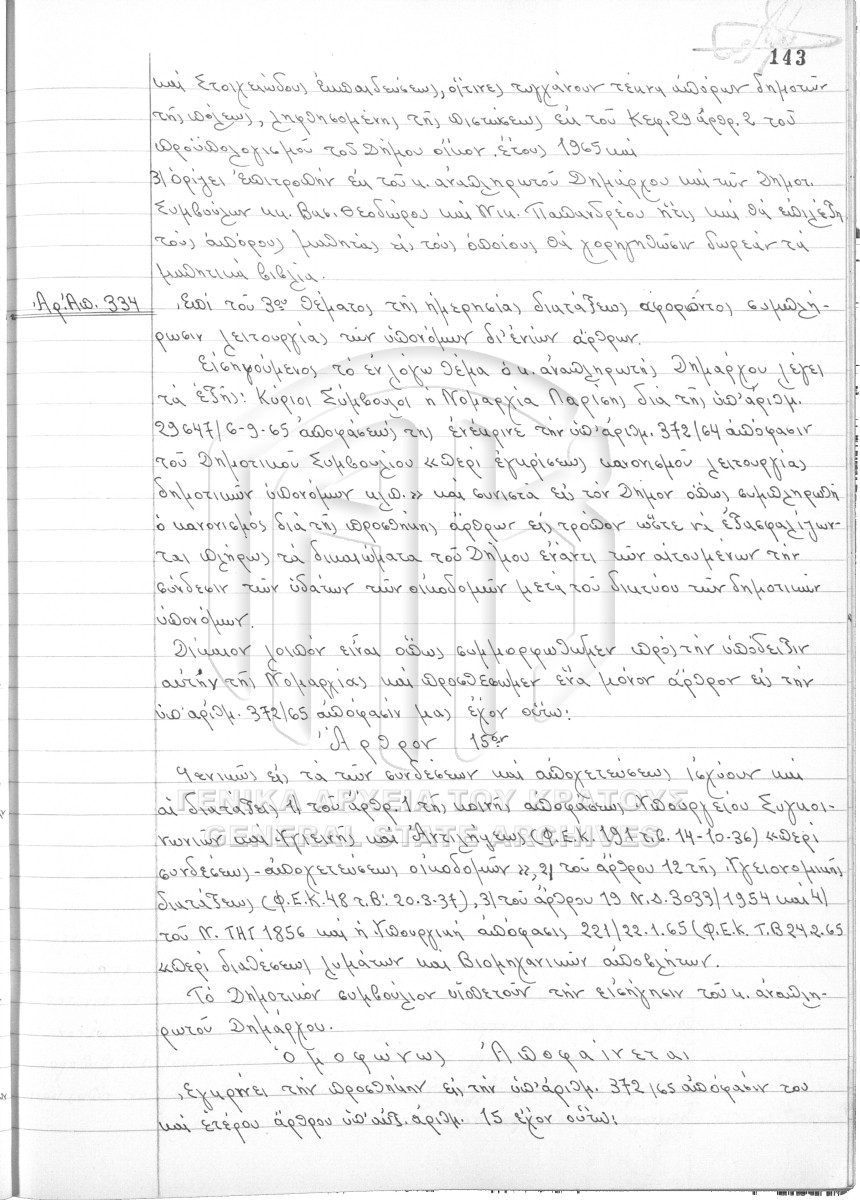 143
καί Στοιχειώδους ἐκπαιδεύσεως, οἵτινες τυγχάνουν τέκνα ἀπόρων δημοτῶν
τῆς πόλεως, ληφθησομένης τῆς πιστώσεως ἐκ τοῦ Κεφ. 29 ἄρθρ. 2 τοῦ
προϋπολογισμοῦ τοῦ Δήμου οἰκον. ἔτους 1965 καί
3) ὁρίζει Ἐπιτροπήν ἐκ τοῦ κ. ἀναπληρωτοῦ Δημάρχου καί τῶν Δημοτ.
Συμβούλων κκ. Βασ. Θεοδώρου καί Νικ. Παπανδρέου ἥτις καί θά ἐπιλέξη
τούς ἀπόρους μαθητάς εἰς τούς ὁποίους θά χορηγηθῶσιν δωρεάν τά
μαθητικά βιβλία.
Ἀρ. Ἀπ. 334
Ἐπί τοῦ 3ου θέματος τῆς ἡμερησίας διατάξεως ἀφορῶντος συμπλή-
ρωσιν λειτουργίας τῶν ὑπονόμων δι' ἐνίων ἄρθρων.
Εἰσηγούμενος τό ἐν λόγω θέμα ὁ κ. ἀναπληρωτής Δημάρχου λέγει
τά ἑξῆς: Κύριοι Σύμβουλοι ἡ Νομαρχία Λαρίσης διά τῆς ὑπ' ἀριθμ.
29647/6-9-65 ἀποφάσεώς της ἐνέκρινε τήν ὑπ' ἀριθμ. 372/64 ἀπόφασιν
τοῦ Δημοτικοῦ Συμβουλίου «περί ἐγκρίσεως κανονισμοῦ λειτουργίας
δημοτικῶν ὑπονόμων κλπ.» καί συνιστᾶ εἰς τόν Δῆμον ὅπως συμπληρωθῆ
ὁ κανονισμός διά τῆς προσθήκης ἄρθρων εἰς τρόπον ὥστε νά ἐξασφαλίζων-
ται πλήρως τά δικαιώματα τοῦ Δήμου ἔναντι τῶν αἰτουμένων τήν
σύνδεσιν τῶν ὑδάτων τῶν οἰκοδομῶν μετά τοῦ δικτύου τῶν δημοτικῶν
ὑπονόμων.
Δίκαιον λοιπόν εἶναι ὅπως συμμορφωθῶμεν πρός τήν ὑπόδειξιν
αὐτήν τῆς Νομαρχίας καί προσθέσωμεν ἕνα μόνον ἄρθρον εἰς τήν
ὑπ' ἀριθμ. 372/65 ἀπόφασίν μας ἔχον οὕτω:
Ἄρθρον 15ον
Γενικῶς εἰς τά τῶν συνδέσεων καί ἀποχετεύσεως ἰσχύουν καί
αἱ διατάξεις 1) τοῦ ἄρθρ. 1 τῆς κοινῆς ἀποφάσεως Ὑπουργείου Συγκοι-
νωνιῶν καί Ὑγιεινῆς καί Ἀντιλήψεως (Φ.Ε.Κ. 191 τ.Β. 14-10-36) «περί
συνδέσεως-ἀποχετεύσεως οἰκοδομῶν», 2) τοῦ ἄρθρου 12 τῆς Ὑγειονομικῆς
διατάξεως (Φ.Ε.Κ. 48 τ.Β': 20.3.37), 3) τοῦ ἄρθρου 19 Ν.Δ. 3033/1954 καί 4)
τοῦ Ν. ΤΗΙ 1856 καί ἡ Ὑπουργική ἀπόφασις 221/22.1.65 (Φ.Ε.Κ. Τ.Β 24.2.65
«περί διαθέσεως λυμάτων καί Βιομηχανικῶν ἀποβλήτων.
Τό Δημοτικόν συμβούλιον υἱοθετοῦν τήν εἰσήγησιν τοῦ κ. ἀναπλη-
ρωτοῦ Δημάρχου.
Ὁμοφώνως Ἀποφαίνεται
Ἐγκρίνει τήν προσθήκην εἰς τήν ὑπ' ἀριθμ. 372/65 ἀπόφασίν του
καί ἑτέρου ἄρθρου ὑπ' αὔξ. ἀριθμ. 15 ἔχον οὕτω:
ΓΕΝΙΚΑ ΑΡΧΕΙΑ ΤΟΥ ΚΡΑΤΟΥΣ
GENERAL STATE ARCHIVES